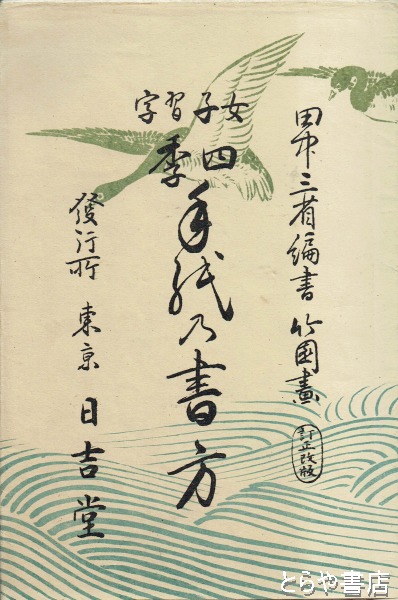 田中三省編書 竹園畫
訂正改版
女子習字
四季
手紙乃書方
發行所 東京 日吉堂
とらや書店